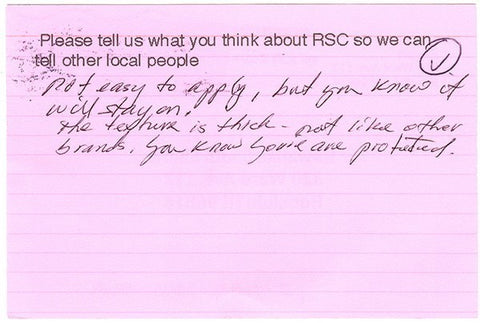 Please tell us what you think about RSC so we can
tell other local people
not easy to apply, but you know it
will stay on.
The texture is thick - not like other
brands. You know you're are protected.